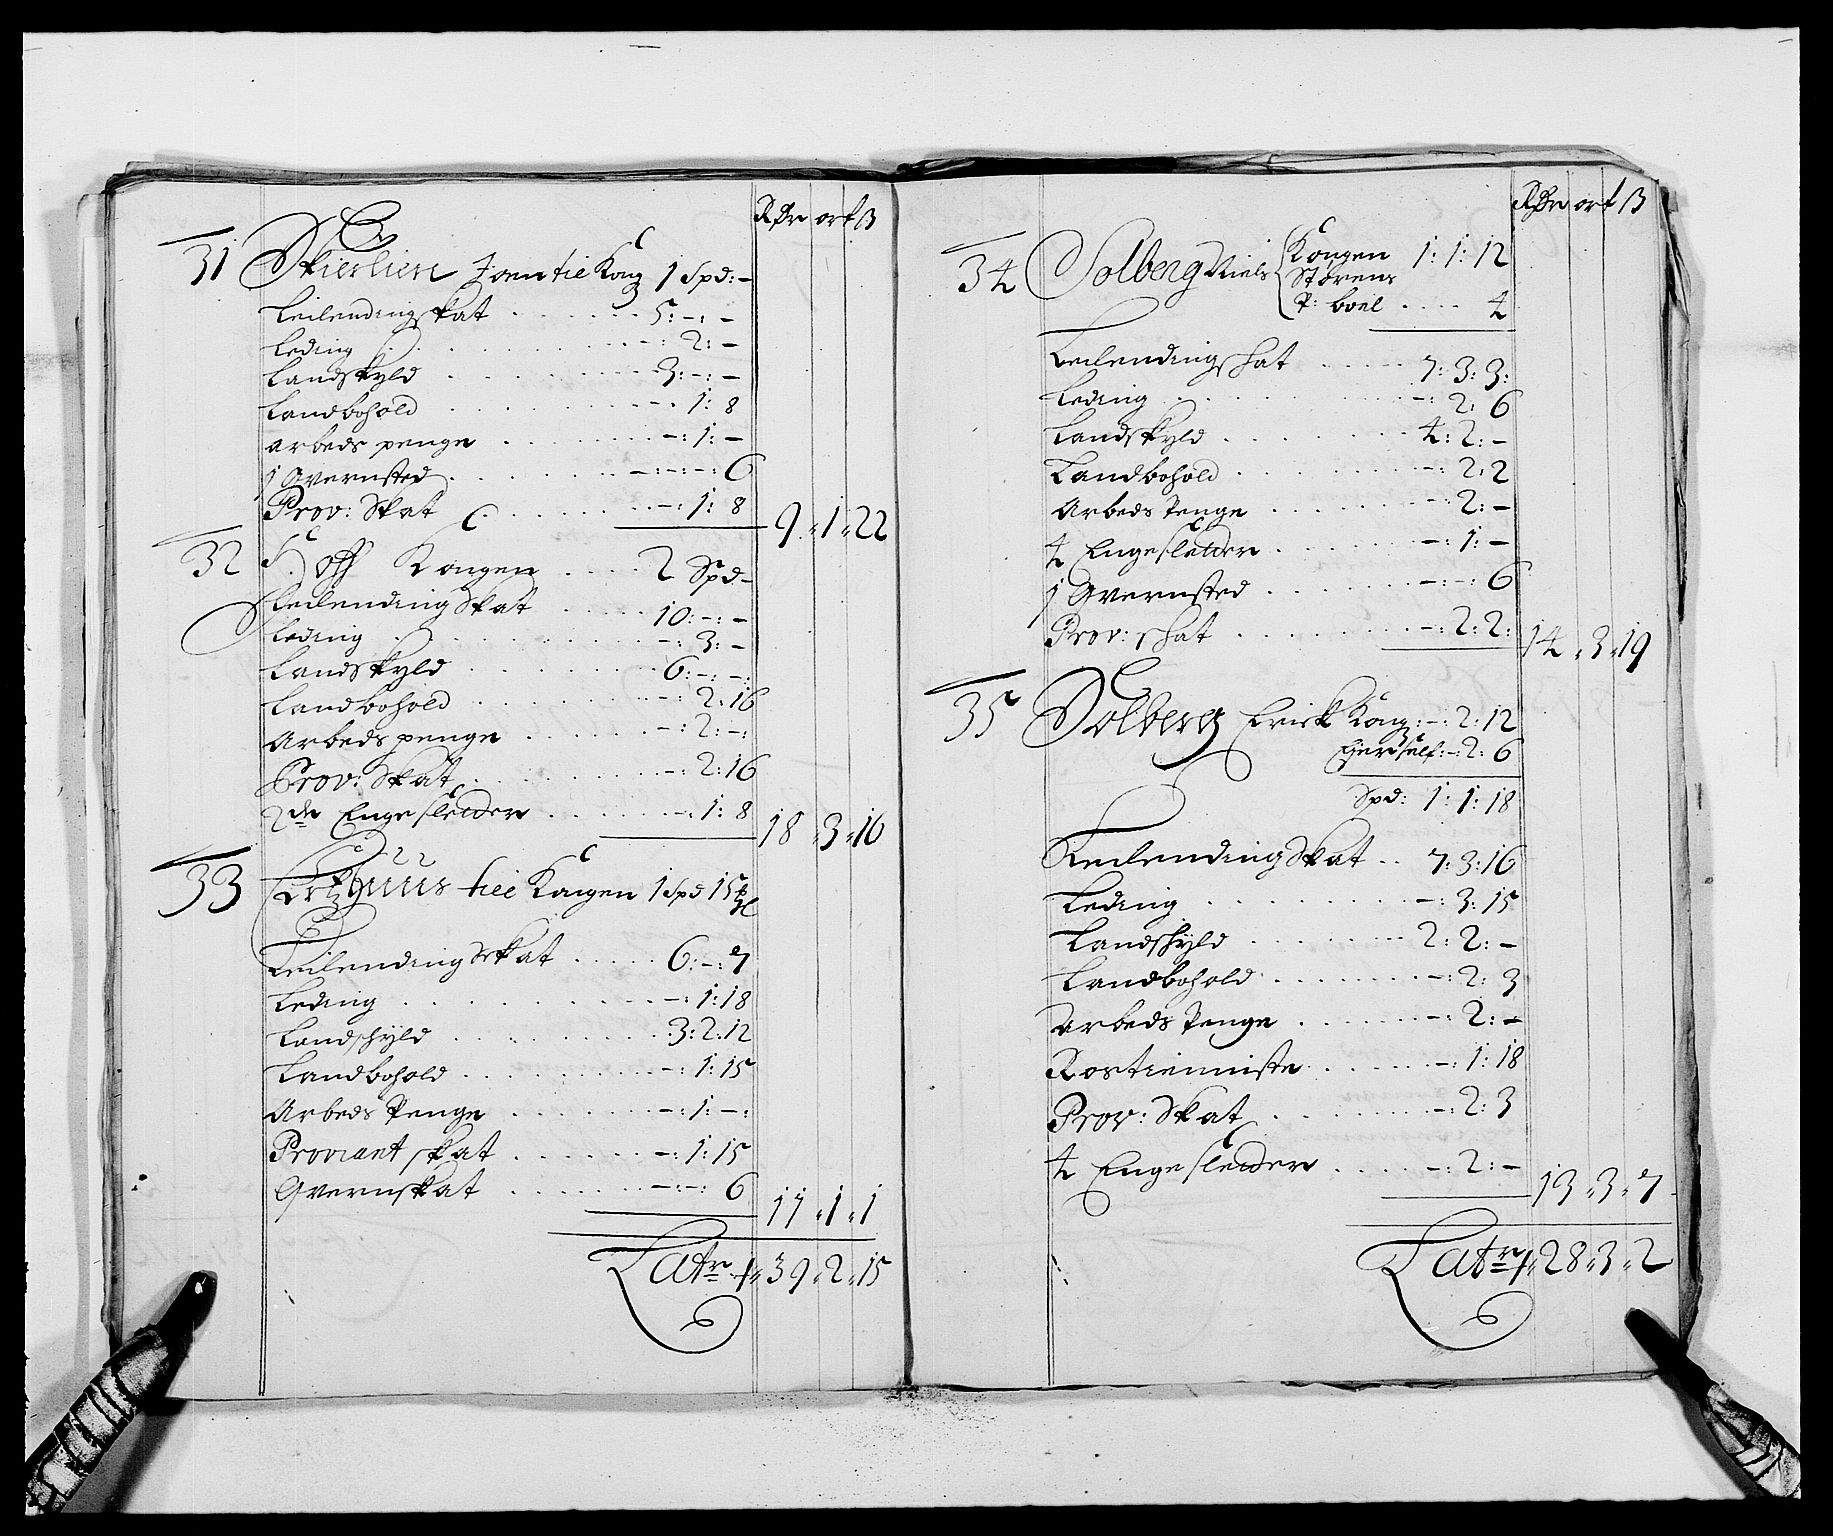 Rdr ort β
31 Skierlien Joen tie Kong 1 Spd:-
Leilending skat ...... 5:-:-
Leding ........ -: 2:-
Landskyld ....... 3:-:-
Landbohold ....... -: 1: 8
arbeds penge ...... -: 1:-
1 Qvernsted ...... -:-:-: 6
Prov: Skat ....... -: 1: 8 9 „ 1 „ 22
32 Kongen .... 2 Spd-
Leilending Skat ..... 10:-:-
Leding ........ -: 3:-
Landskyld ....... 6:-:-:
Landbohold ....... -: 2: 16
Arbeds penge ...... -: 2:-:
Prov: Skat ....... -: 2: 16
2de Engesletter ...... -: 1: 8 18 „ 3 „ 16
33 huus tiee Kongen 1 Spd 15
Leilending Skat ..... 6:-: 7
Leding ......... -: 1: 18
Landskyld ........ 3: 2: 12
Landbohold ....... -: 1: 15
Arbeds Penge ...... -: 1:-:
Proviant skat ...... -: 1: 15
Qvernskat ...... -:-: 6 11 „ 1 „ 1
Latr „ 39 „ 2 „ 15
Rdr ort β
34 Solberg Niels Kongen 1: 1: 12
Storens
P: boel .... 4
Leilending skat ..... 7: 3: 3:
Leding ........ -: 2: 6
Landskyld ....... 4: 2:-
Landbohold ...... -: 2: 2
Arbeds Penge ...... -: 2:-
4 Engesletter ...... -: 1:-
1 Qvernsted ...... -:-: 6
Prov: skat ....... -: 2: 2: 14 „ 3 „ 19
35 Solberg Erick Kong:-: 2: 12
Eier self:-: 2: 6
Spd: 1: 1: 18
Leilending Skat .. 7: 3: 16
Leding ........ -: 3: 15
Landskyld ....... 2: 2:-
Landbohold ....... -: 2: 3
Arbeds Penge ...... -: 2:-
Rostienniste ...... -: 1: 18
Prov: Skat ....... -: 2: 3
4 Engesletter ..... -: 2:- 13 „ 3 „ 7
Latr „ 28 „ 3 „ 2